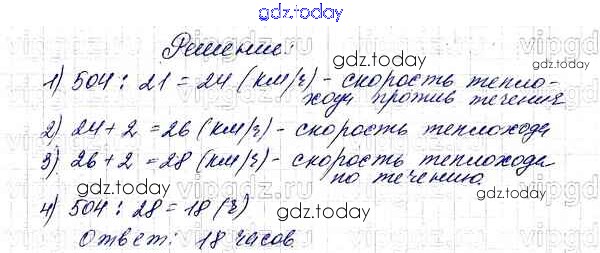 gdz.today
Решение:
1) 504 : 21 = 24 (км/ч) - скорость тепло-
хода против течения
2) 24 + 2 = 26 (км/ч) - скорость теплохода
3) 26 + 2 = 28 (км/ч) - скорость теплохода
по течению.
4) 504 : 28 = 18 (ч)
Ответ: 18 часов
gdz.today
gdz.today
gdz.today
gdz.today
gdz.today